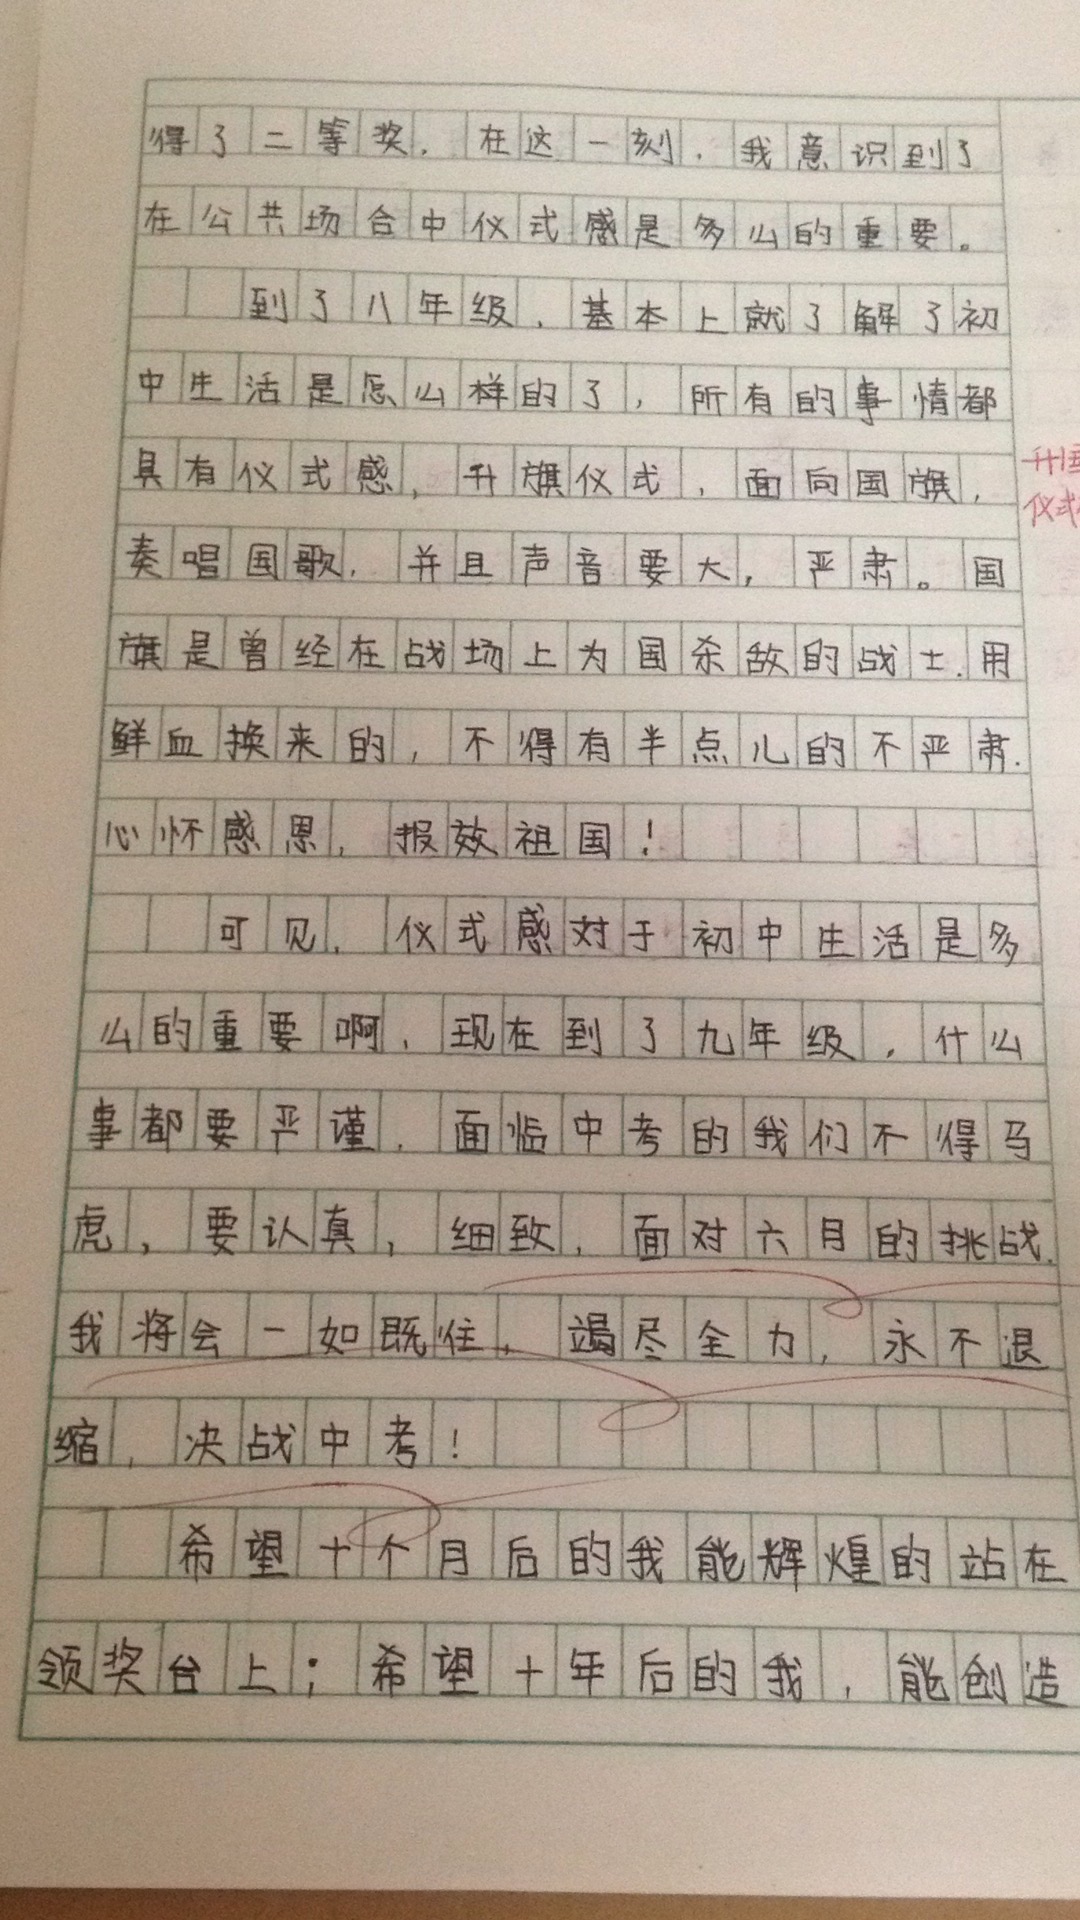 得了二等奖，在这一刻，我意识到了
在公共场合中仪式感是多么的重要。
到了八年级，基本上就了解了初
中生活是怎么样的了，所有的事情都
具有仪式感，升旗仪式，面向国旗，
奏唱国歌，并且声音要大，严肃。国
旗是曾经在战场上为国杀敌的战士，用
鲜血换来的，不得有半点儿的不严肃.
心怀感恩，报效祖国！
可见，仪式感对于初中生活是多
么的重要啊，现在到了九年级，什么
事都要严谨，面临中考的我们不得马
虎，要认真，细致，面对六月的挑战.
我将会一如既往，竭尽全力，永不退
缩，决战中考！
希望十个月后的我能辉煌的站在
领奖台上；希望十年后的我，能创造
升国
仪式